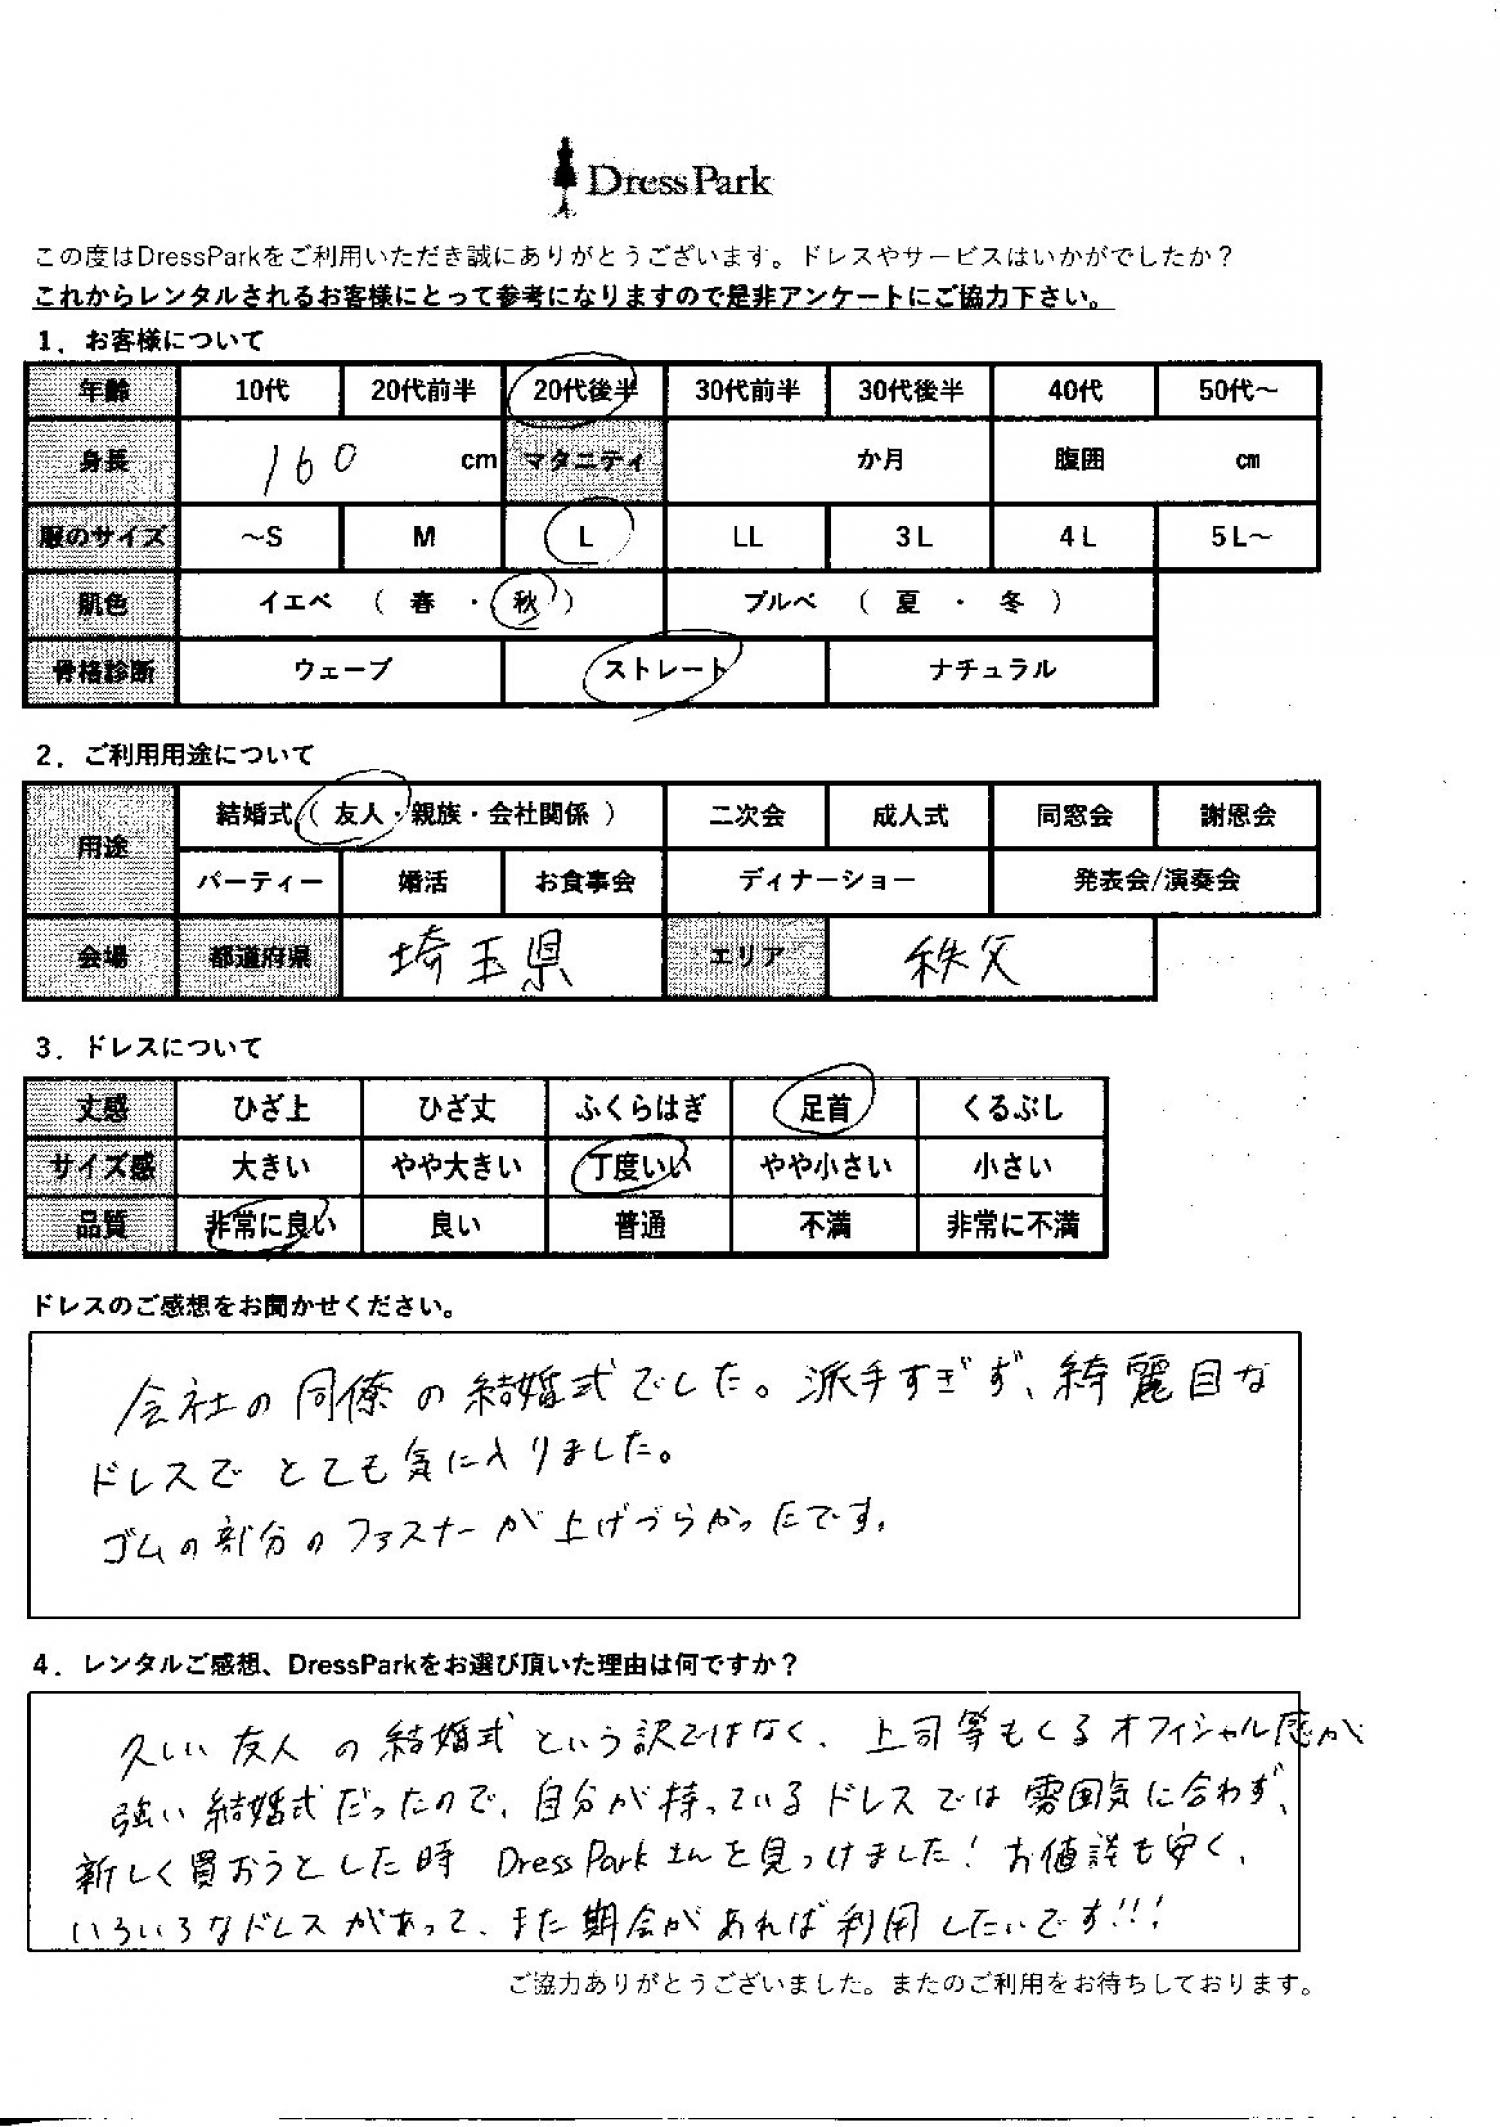 DressPark
この度はDressParkをご利用いただき誠にありがとうございます。ドレスやサービスはいかがでしたか？
これからレンタルされるお客様にとって参考になりますので是非アンケートにご協力下さい。
1．お客様について
年齢 10代 20代前半 20代後半 30代前半 30代後半 40代 50代～
身長 160 cm マタニティ か月 腹囲 cm
服のサイズ ～S M L LL 3L 4L 5L～
肌色 イエベ （ 春 ・ 秋 ） ブルベ （ 夏 ・ 冬 ）
骨格診断 ウェーブ ストレート ナチュラル
2．ご利用用途について
用途 結婚式（ 友人・親族・会社関係 ） 二次会 成人式 同窓会 謝恩会
パーティー 婚活 お食事会 ディナーショー 発表会/演奏会
会場 都道府県 埼玉県 エリア 秩父
3．ドレスについて
丈感 ひざ上 ひざ丈 ふくらはぎ 足首 くるぶし
サイズ感 大きい やや大きい 丁度いい やや小さい 小さい
品質 非常に良い 良い 普通 不満 非常に不満
ドレスのご感想をお聞かせください。
会社の同僚の結婚式でした。派手すぎず、綺麗目な
ドレスでとても気に入りました。
ゴムの部分のファスナーが上げづらかったです。
4．レンタルご感想、DressParkをお選び頂いた理由は何ですか？
久しい友人の結婚式という訳ではなく、上司等もくるオフィシャル感が
強い結婚式だったので、自分が持っているドレスでは雰囲気に合わず、
新しく買おうとした時 DressParkさんを見つけました！お値段も安く、
いろいろなドレスがあって、また期会があれば利用したいです!!!
ご協力ありがとうございました。またのご利用をお待ちしております。